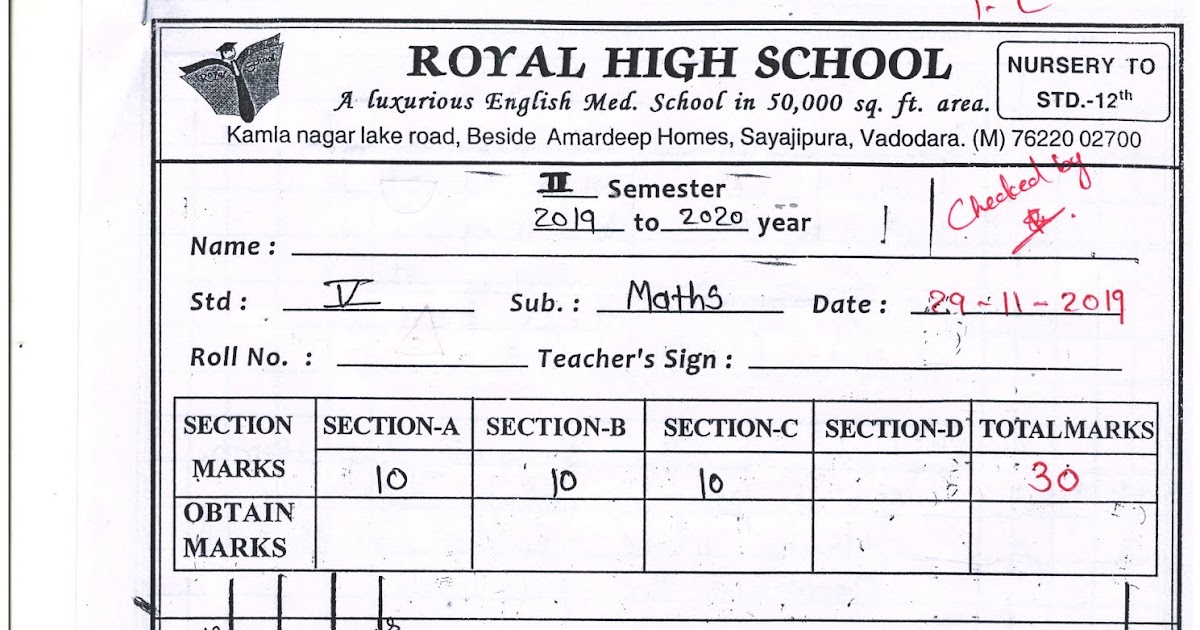 ROYAL HIGH SCHOOL
A luxurious English Med. School in 50,000 sq. ft. area.
NURSERY TO
STD.-12th
Kamla nagar lake road, Beside Amardeep Homes, Sayajipura, Vadodara. (M) 76220 02700
II Semester
2019 to 2020 year
Checked by
Name :
Std : V Sub. : Maths Date : 29-11-2019
Roll No. : Teacher's Sign :
SECTION SECTION-A SECTION-B SECTION-C SECTION-D TOTAL MARKS
MARKS 10 10 10 30
OBTAIN
MARKS